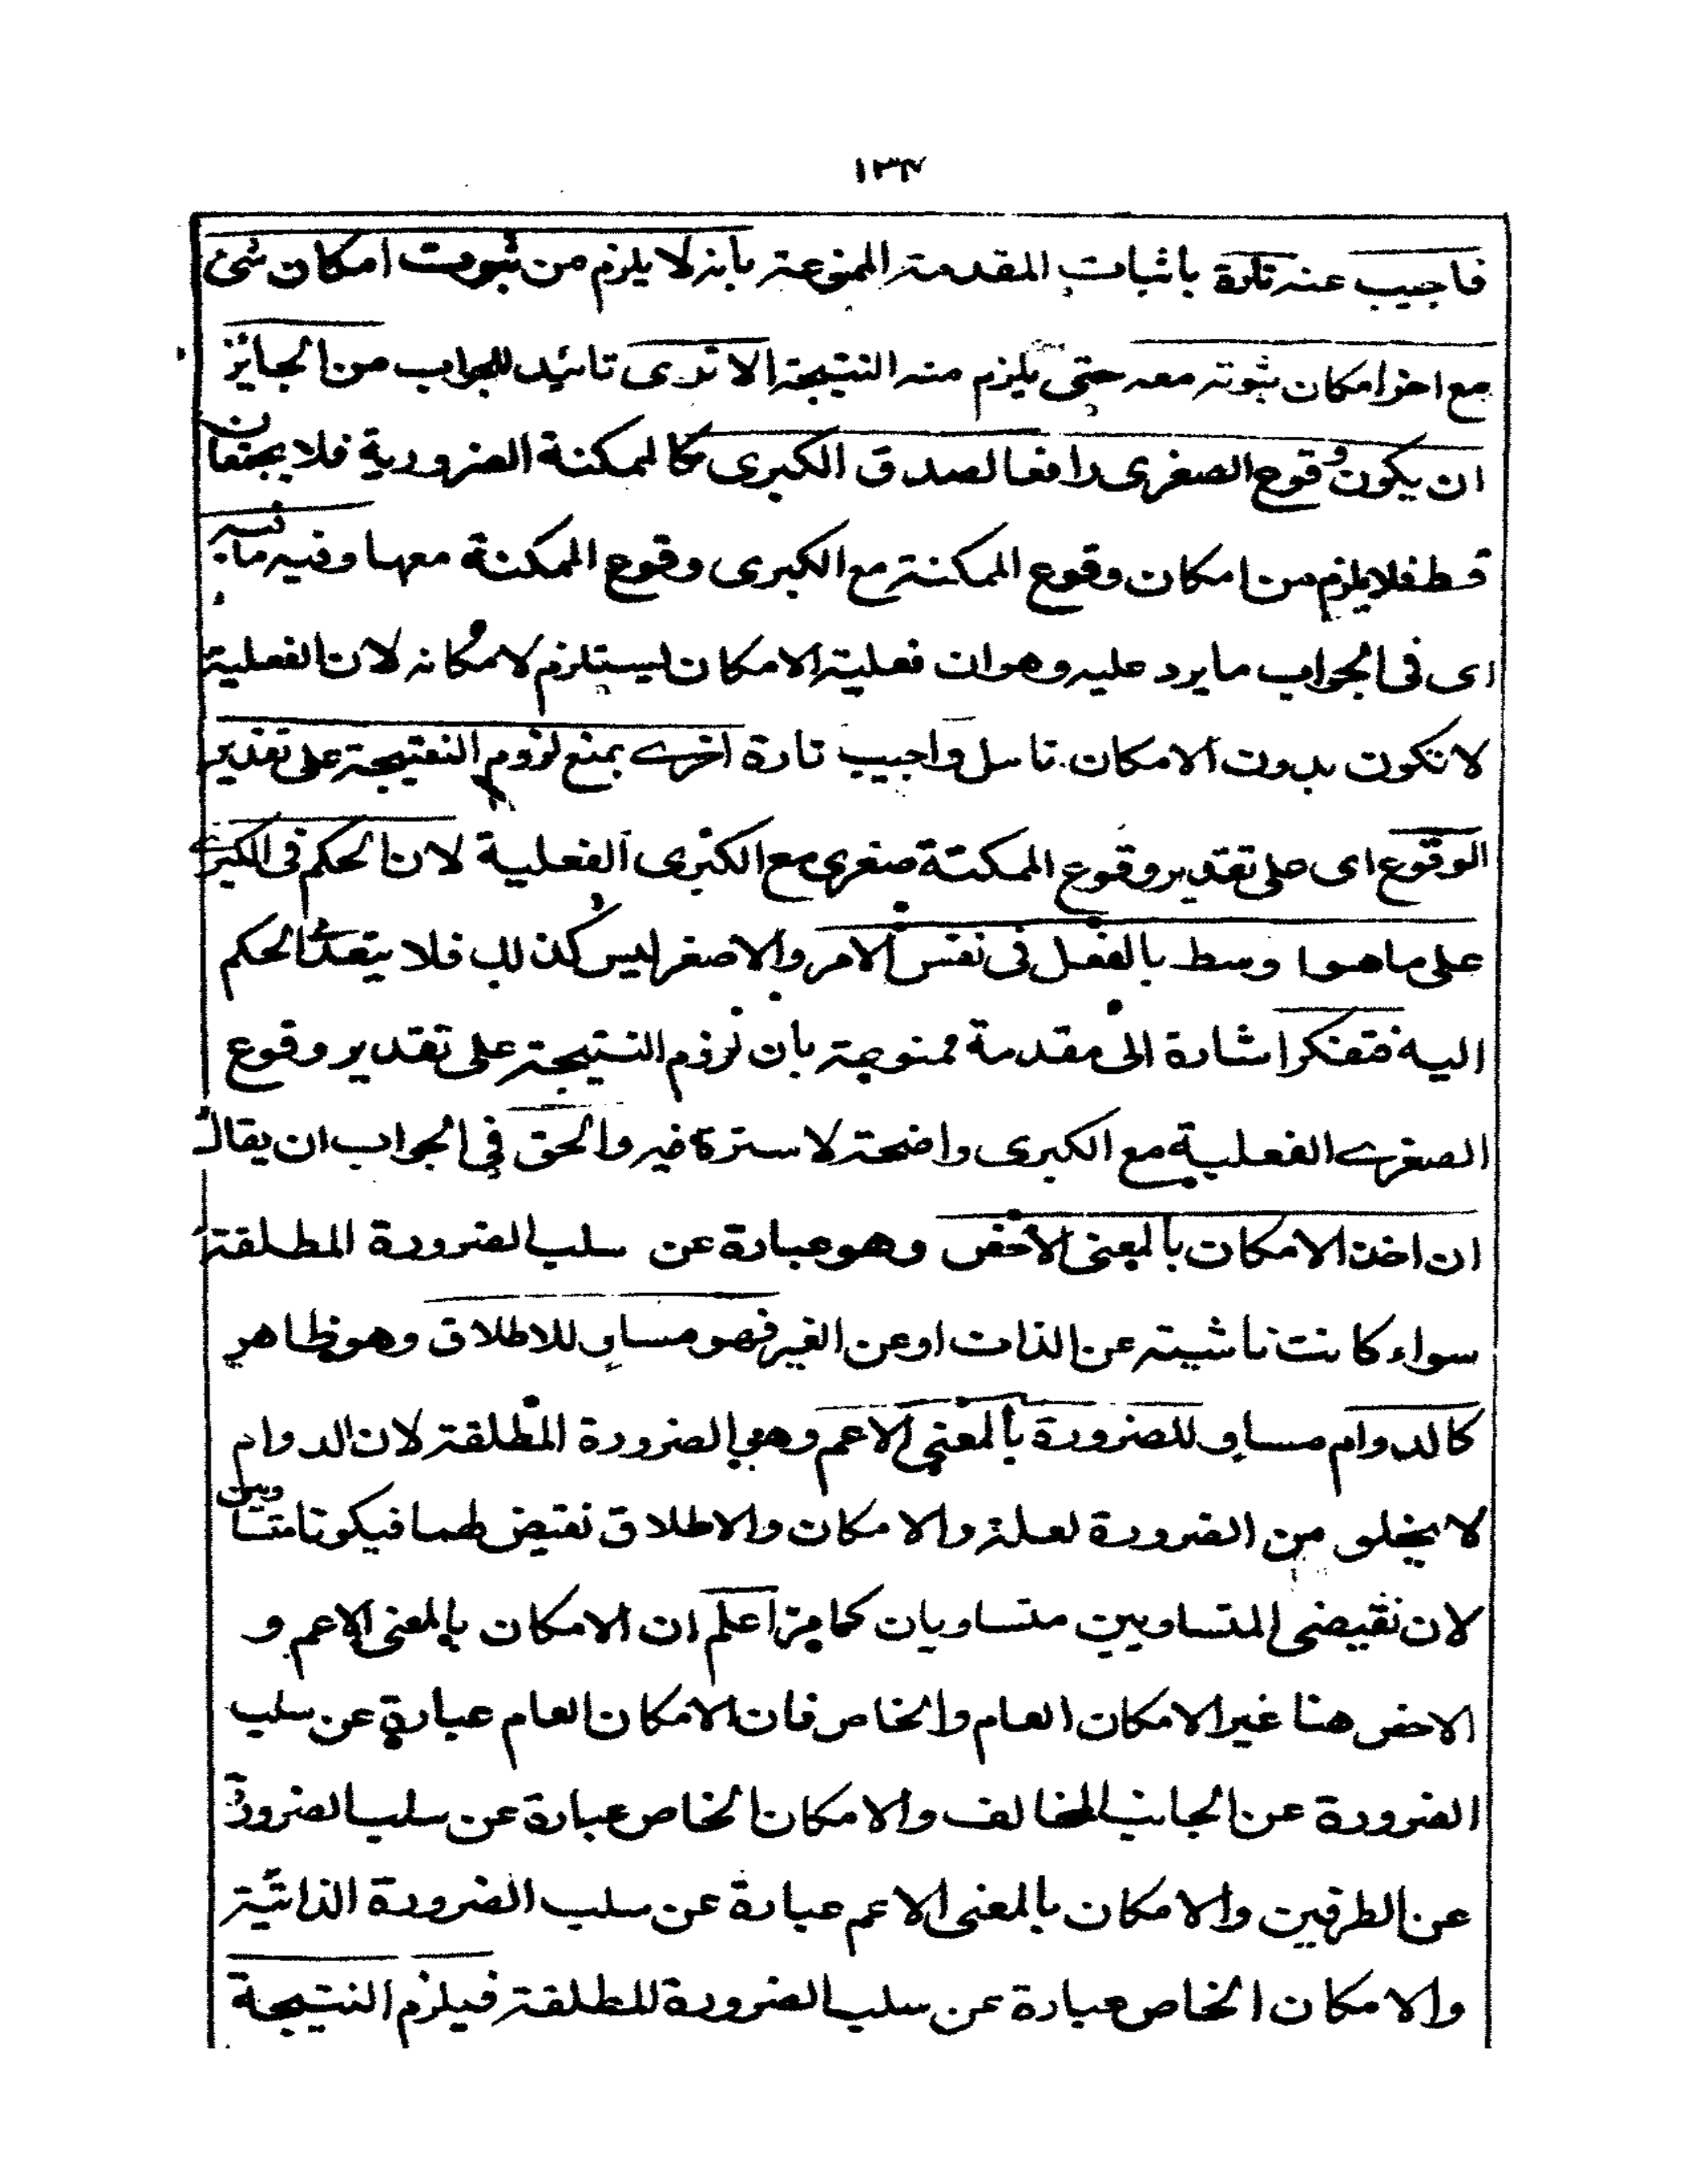 ١٣٤
فاجيب عنه تارة باثبات المقدمة الممنوعة بانه لا يلزم من ثبوت امكان شئ
مع اخر امكان ثبوته معه حتى يلزم منه النتيجة الا ترى تائيد للجواب من الجايز
ان يكون وقوع الصغرى رافعا لصدق الكبرى كالممكنة الضرورية فلا يجتمعان
قط فلا يلزم من امكان وقوع الممكنة مع الكبرى وقوع الممكنة معها وفيه ما فيه
اى فى الجواب ما يرد عليه وهو ان فعلية الامكان ليستلزم لامكانه لان الفعلية
لا تكون بدون الامكان تامل واجيب تارة اخرے بمنع لزوم النتيجة على تقدير
الوقوع اى على تقدير وقوع الممكنة صغرى مع الكبرى الفعلية لان الحكم فى الكبرے
على ما هو اوسط بالفعل فى نفس الامر والاصغر ليس كذلك فلا يتعدى الحكم
اليه فتفكر اشارة الى مقدمة ممنوعة بان لزوم النتيجة على تقدير وقوع
الصغرے الفعلية مع الكبرى واضحة لا سترة فيه والحق في الجواب ان يقال
ان اخذ الامكان بالمعنى الاخص وهو عبارة عن سلب الضرورة المطلقة
سواء كانت ناشية عن الذات او عن الغير فهو مساو للاطلاق وهو ظاهر
كالدوام مساو للضرورة بالمعنى الاعم وهي الضرورة المطلقة لان الدوام
لا يخلو من الضرورة لعلة والامكان والاطلاق نقيض لهما فيكونا متساويين
لان نقيضى المتساويين متساويان كما مر اعلم ان الامكان بالمعنى الاعم و
الاخص هنا غير الامكان العام والخاص فان الامكان العام عبارة عن سلب
الضرورة عن الجانب المخالف والامكان الخاص عبارة عن سلب الضرورة
عن الطرفين والامكان بالمعنى الاعم عبارة عن سلب الضرورة الذاتية
والامكان الخاص عبارة عن سلب الضرورة المطلقة فيلزم النتيجة